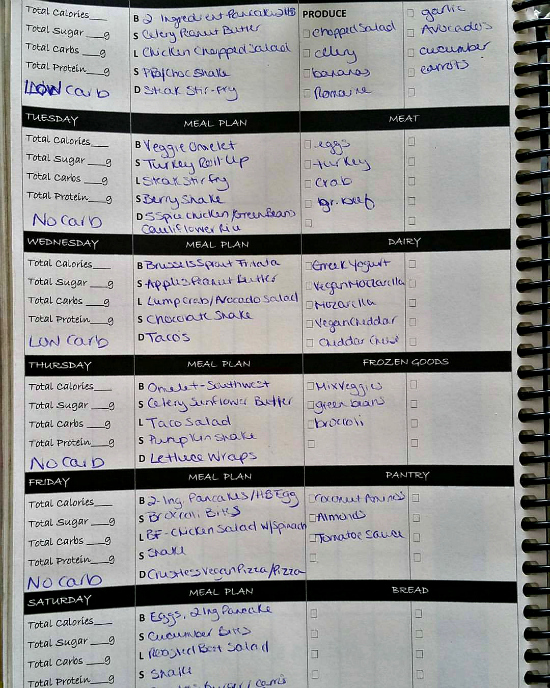 Total Calories___ B 2 Ingredient Pancake PRODUCE garlic
Total Sugar ___g S Celery Peanut Butter chopped Salad Avocados
Total Carbs ___g L Chicken Chopped Salad celery cucumber
Total Protein___g S PB/Choc Shake bananas carrots
Low Carb D Steak Stir-fry Romaine
TUESDAY MEAL PLAN MEAT
Total Calories___ B Veggie Omelet eggs
Total Sugar ___g S Turkey Roll Up turkey
Total Carbs ___g L Steak Stir fry crab
Total Protein___g S Berry Shake gr. beef
No Carb D 5 Spice Chicken/Green Beans
Cauliflower Rice
WEDNESDAY MEAL PLAN DAIRY
Total Calories___ B Brussels Sprout Fritata Greek Yogurt
Total Sugar ___g S Apples Peanut Butter Vegan Mozzarella
Total Carbs ___g L Lump Crab/Avocado Salad Mozarella
Total Protein___g S Chocolate Shake Vegan Cheddar
Low Carb D Tacos Cheddar
THURSDAY MEAL PLAN FROZEN GOODS
Total Calories___ B Omelet-Southwest Mix Veggies
Total Sugar ___g S Celery Sunflower Butter green beans
Total Carbs ___g L Taco Salad broccoli
Total Protein___g S Pumpkin Shake
No Carb D Lettuce Wraps
FRIDAY MEAL PLAN PANTRY
Total Calories___ B 2-Ing. Pancakes/HB Egg Coconut Aminos
Total Sugar ___g S Broccoli Bites Almonds
Total Carbs ___g L BF-Chicken Salad w/Spinach Tomatoe Sauce
Total Protein___g S Shake
No Carb D Crustless Vegan Pizza/Pizza
SATURDAY MEAL PLAN BREAD
Total Calories___ B Eggs, 2 Ing Pancake
Total Sugar ___g S Cucumber Bites
Total Carbs ___g L Roasted Beet Salad
Total Protein___g S Shake